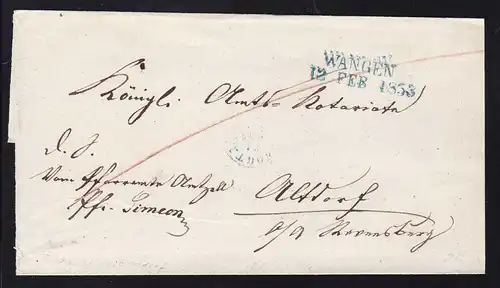 WANGEN
12 FEB 1853
Königl. Amts-Notariate
d. S.
Vom Pfarramte Amtzell
Pfr. Simeon
Altdorf
p/a Ravensberg